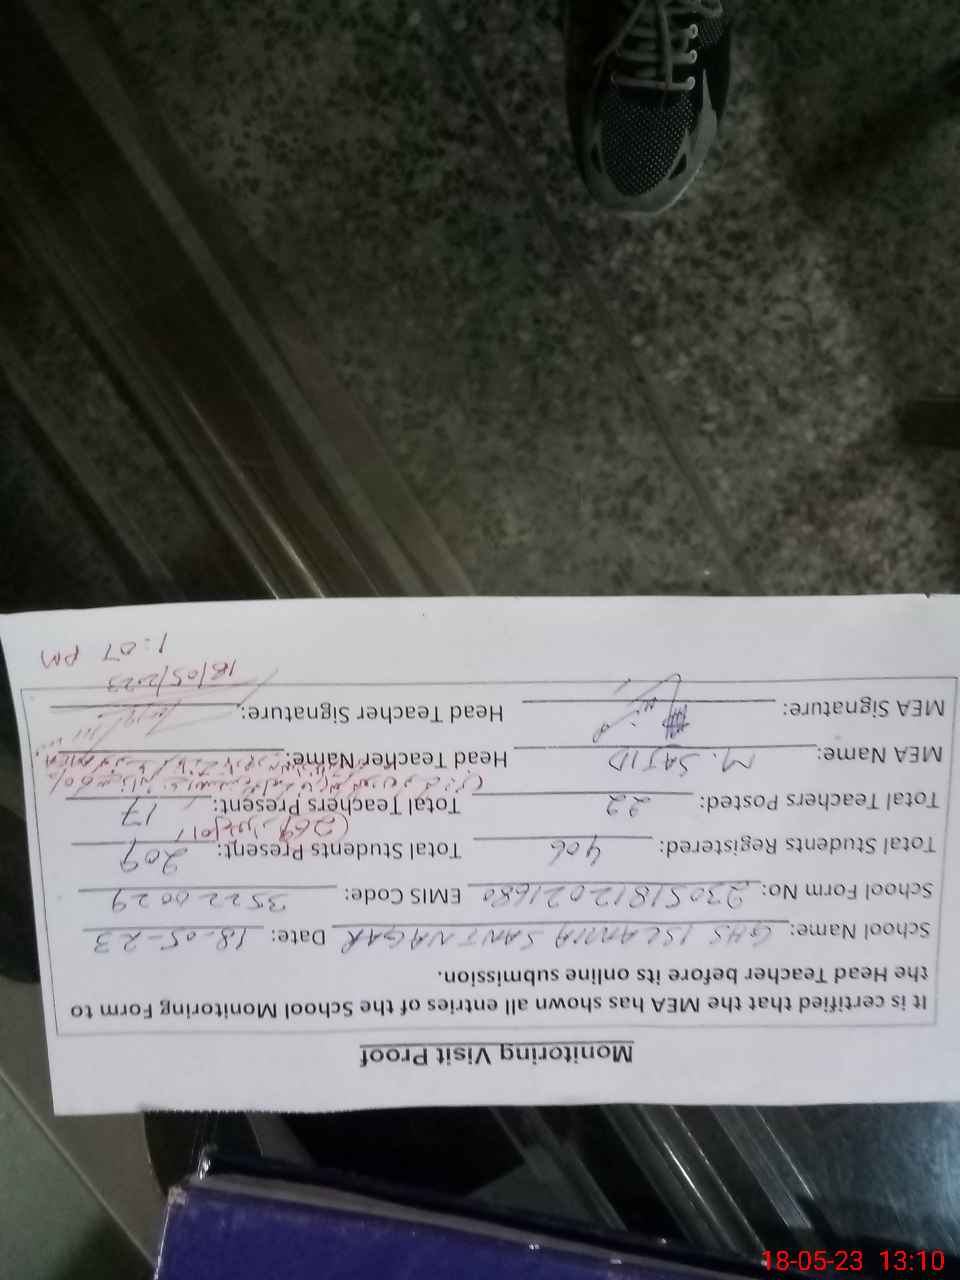 Monitoring Visit Proof
It is certified that the MEA has shown all entries of the School Monitoring Form to
the Head Teacher before its online submission.
School Name: GHS ISLAMIA SANT NAGAR Date: 18-05-23
School Form No: 23051812021680 EMIS Code: 35220029
Total Students Registered: 406 Total Students Present: 209
(269
Total Teachers Posted: 22 Total Teachers Present: 17
MEA Name: M. SAJID Head Teacher Name:
MEA Signature: Head Teacher Signature:
18/05/2023
1:07 PM
18-05-23 13:10